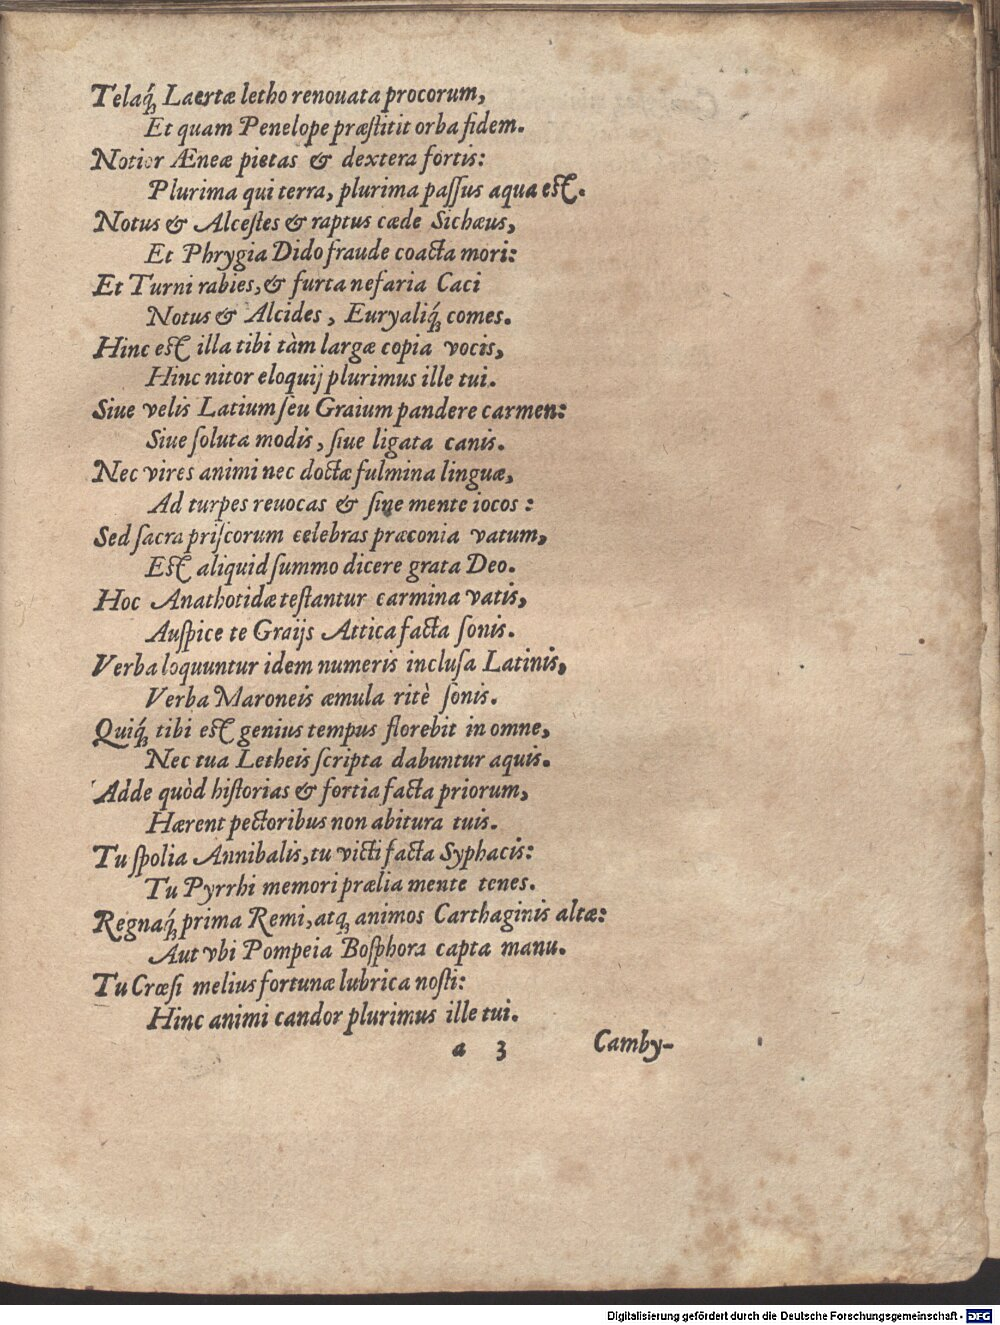 Telaq́ꝫ Laertæ letho renouata procorum,
Et quam Penelope præſtitit orba fidem.
Notior Æneæ pietas & dextera fortis:
Plurima qui terra, plurima paſſus aqua eſt.
Notus & Alceſtes & raptus cæde Sichæus,
Et Phrygia Dido fraude coacta mori:
Et Turni rabies, & furta nefaria Caci
Notus & Alcides, Euryaliq́ꝫ comes.
Hinc eſt illa tibi tàm largæ copia vocis,
Hinc nitor eloquij plurimus ille tui.
Siue velis Latium ſeu Graium pandere carmen:
Siue ſoluta modis, ſiue ligata canis.
Nec vires animi nec doctæ fulmina linguæ,
Ad turpes reuocas & ſine mente iocos:
Sed ſacra priſcorum celebras præconia vatum,
Eſt aliquid ſummo dicere grata Deo.
Hoc Anathotidæ teſtantur carmina vatis,
Auſpice te Graijs Attica facta ſonis.
Verba loquuntur idem numeris incluſa Latinis,
Verba Maroneis æmula ritè ſonis.
Quiq́ꝫ tibi eſt genius tempus florebit in omne,
Nec tua Letheis ſcripta dabuntur aquis.
Adde quòd hiſtorias & fortia facta priorum,
Hærent pectoribus non abitura tuis.
Tu ſpolia Annibalis, tu victi facta Syphacis:
Tu Pyrrhi memori prælia mente tenes.
Regnaq́ꝫ prima Remi, atqꝫ animos Carthaginis altæ:
Aut vbi Pompeia Boſphora capta manu.
Tu Crœſi melius fortunæ lubrica noſti:
Hinc animi candor plurimus ille tui.
a 3 Camby-
Digitalisierung gefördert durch die Deutsche Forschungsgemeinschaft - DFG